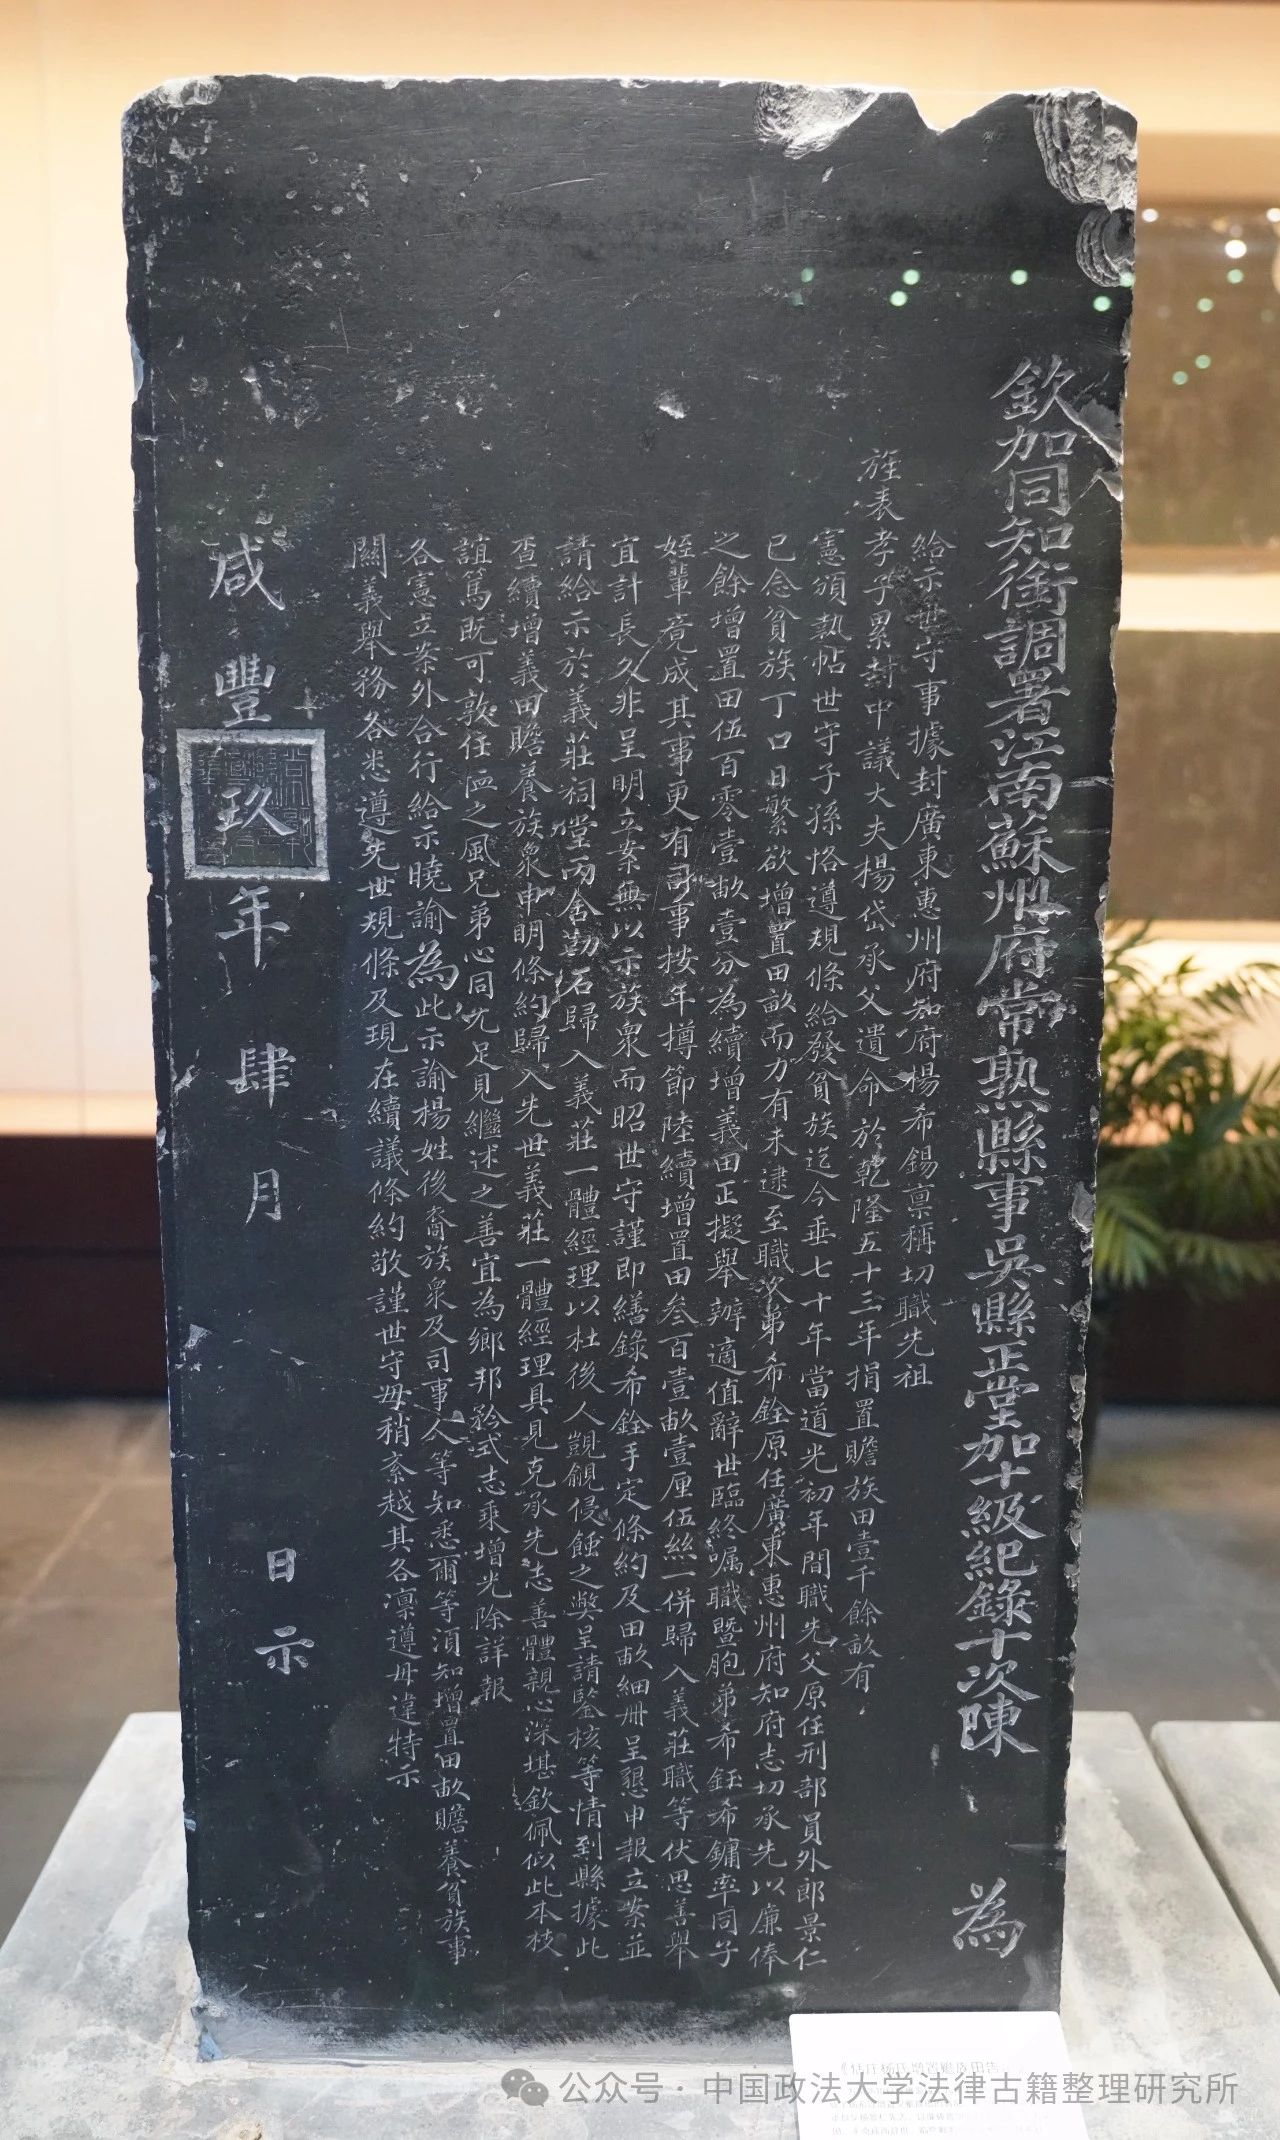 欽加同知銜調署江南蘇州府常熟縣事吳縣正堂加十級紀錄十次陳 為
給示世守事據封廣東惠州府知府楊希錫稟稱切職先祖
旌表孝子累封中議大夫楊岱承父遺命於乾隆五十三年捐置贍族田壹千餘畝有
憲頒執帖世守子孫恪遵規條給發貧族迄今垂七十年當道光初年間職先父原任刑部員外郎景仁
已念貧族丁口日繁欲增置田畝而力有未逮至職次弟希銓原任廣東惠州府知府志切承先以廉俸
之餘增置田伍百零壹畝壹分為續增義田正擬舉辦適值辭世臨終囑職暨胞弟希鈺希鏞率同子
姪輩竟成其事更有司事按年撙節陸續增置田叁百壹畝壹厘伍絲一併歸入義莊職等伏思善舉
宜計長久非呈明立案無以示族眾而昭世守謹即繕錄希銓手定條約及田畝細冊呈懇申報立案並
請給示於義莊祠堂兩舍勒石歸入義莊一體經理以杜後人覬覦侵蝕之獘呈請鑒核等情到縣據此
查續增義田贍養族眾申明條約歸入先世義莊一體經理具見克承先志善體親心深堪欽佩似此本枝
誼篤既可敦任恤之風兄弟心同尤足見繼述之善宜為鄉邦矜式志乘增光除詳報
各憲立案外合行給示曉諭為此示諭楊姓後裔族眾及司事人等知悉爾等須知增置田畝贍養貧族事
關義舉務各悉遵先世規條及現在續議條約敬謹世守毋稍紊越其各凜遵毋違特示
咸豐玖年肆月 日示
公众号·中国政法大学法律古籍整理研究所